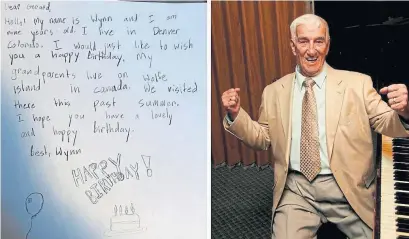 Dear Gerard
Hello, my name is Wynn and I am
nine years old. I live in Denver
Colorado. I would just like to wish
you a happy birthday. my
grandparents live on Wolfe
island in canada. We visited
there this past summer.
I hope you have a lovely
and happy birthday.
best, Wynn
HAPPY
BIRTHDAY!